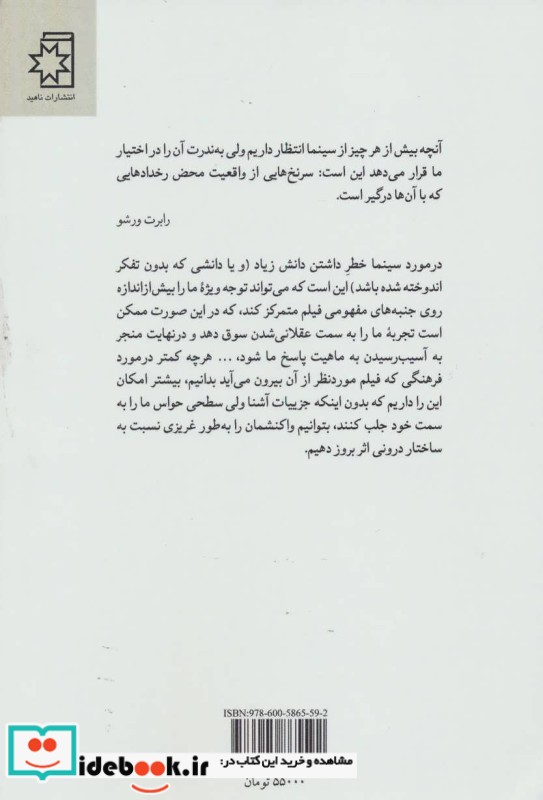 انتشارات ناهید
آنچه بیش از هر چیز از سینما انتظار داریم ولی به‌ندرت آن را در اختیار
ما قرار می‌دهد این است: سرنخ‌هایی از واقعیت محض رخدادهایی
که با آن‌ها درگیر است.
رابرت ورشو
درمورد سینما خطرِ داشتن دانش زیاد (و یا دانشی که بدون تفکر
اندوخته شده باشد) این است که می‌تواند توجه ویژهٔ ما را بیش‌ازاندازه
روی جنبه‌های مفهومی فیلم متمرکز کند، که در این صورت ممکن
است تجربهٔ ما را به سمت عقلانی‌شدن سوق دهد و درنهایت منجر
به آسیب‌رسیدن به ماهیت پاسخ ما شود، ... هرچه کمتر درمورد
فرهنگی که فیلم موردنظر از آن بیرون می‌آید بدانیم، بیشتر امکان
این را داریم که بدون اینکه جزییات آشنا ولی سطحی حواس ما را به
سمت خود جلب کنند، بتوانیم واکنشمان را به‌طور غریزی نسبت به
ساختار درونی اثر بروز دهیم.
ISBN:978-600-5865-59-2
مشاهده و خرید این کتاب در:
idebook.ir
۵۵۰۰۰ تومان